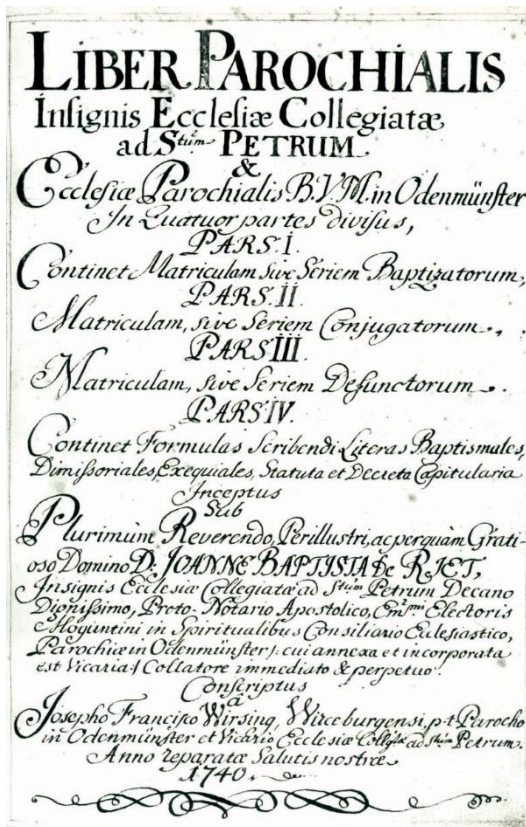 LIBER PAROCHIALIS
Insignis Ecclesiæ Collegiatæ
ad S^tum PETRUM
&
Ecclesiæ Parochialis B.V.M. in Odenmünster
In Quatuor partes divisus,
PARS. I.
Continet Matriculam sive Seriem Baptizatorum,
PARS. II.
Matriculam, sive Seriem Conjugatorum.
PARS III.
Matriculam, sive Seriem Defunctorum.
PARS IV.
Continet Formulas Scribendi Literas Baptismales,
Dimissoriales, Exequiales, Statuta et Decreta Capitularia
Inceptus
Sub
Plurimùm Reverendo, Perillustri, ac perquàm Grati-
oso Domino D. JOANNE BAPTISTA De RIET,
Insignis Ecclesiæ Collegiatæ ad S^tum Petrum Decano
Dignissimo, Proto-Notario Apostolico, Em^mi Electoris
Moguntini in Spiritualibus Consiliario Ecclesiastico,
Parochiæ in Odenmünster /: cui annexa et incorporata
est Vicaria :/ Collatore immediato & perpetuo.
Conscriptus
à
Josepho Francisco Wirsing, Wirceburgensi, p.t. Parocho
in Odenmünster et Vicario Ecclesiæ Colleg^tæ ad S^tum Petrum.
Anno reparatæ Salutis nostræ
1740.